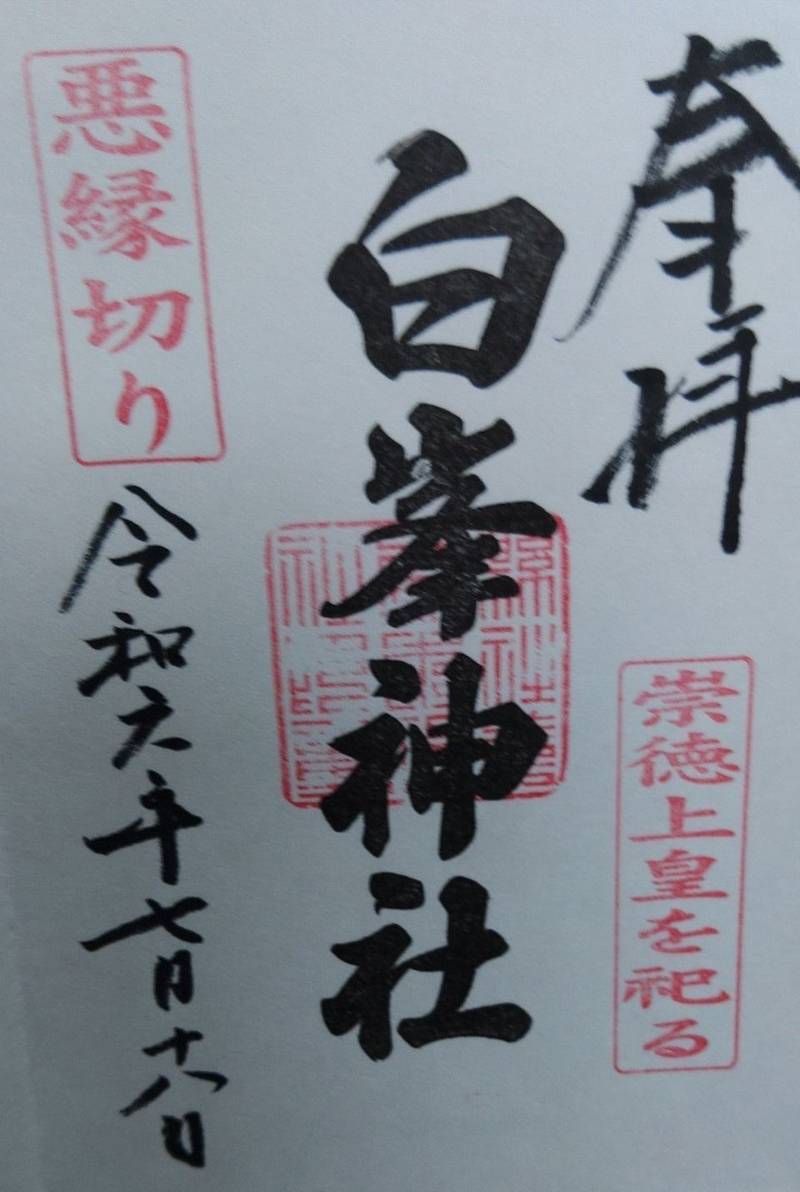 奉拝
崇徳上皇を祀る
白峯神社
悪縁切り
令和六年七月十八日